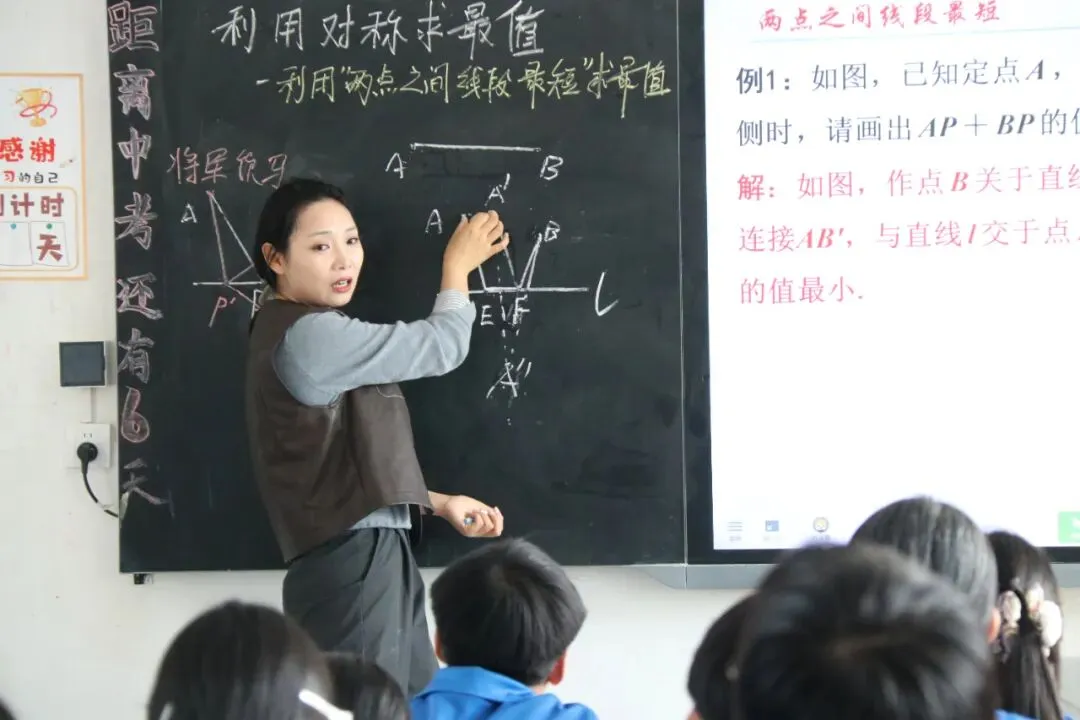 感谢
习的自己
计时
天
距离中考还有6天
利用对称求最值
一利用"两点之间线段最短"求最值
将军饮马
A
P'
A B
A'
A B
E F L
A''
两点之间线段最短
例1：如图，已知定点A，
侧时，请画出AP＋BP的
解：如图，作点B关于直
连接AB′，与直线l交于点
的值最小.